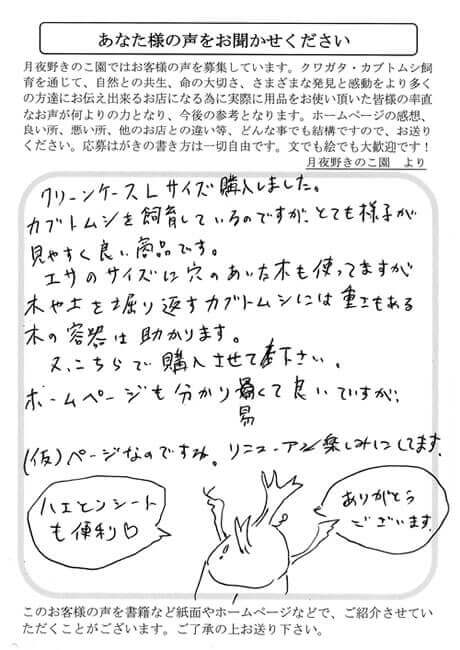 あなた様の声をお聞かせください
月夜野きのこ園ではお客様の声を募集しています。クワガタ・カブトムシ飼
育を通じて、自然との共生、命の大切さ、さまざまな発見と感動をより多く
の方達にお伝え出来るお店になる為に実際に用品をお使い頂いた皆様の率直
なお声が何よりの力となり、今後の参考となります。ホームページの感想、
良い所、悪い所、他のお店との違い等、どんな事でも結構ですので、お送り
ください。応募はがきの書き方は一切自由です。文でも絵でも大歓迎です！
月夜野きのこ園　より
クリーンケースLサイズ購入しました。
カブトムシを飼育しているのですが、とても様子が
見やすく良い商品です。
エサのサイズに穴のあいた木も使ってますが
木や土を堀り返すカブトムシには重さもある
木の容器は助かります。
又、こちらで購入させて下さい。
ホームページも分かり易くて良いですが、
(仮)ページなのですね。リニューアル楽しみにしてます。
ハエとンシート
も便利
ありがとう
ございます。
このお客様の声を書籍など紙面やホームページなどで、ご紹介させてい
ただくことがございます。ご了承の上お送り下さい。